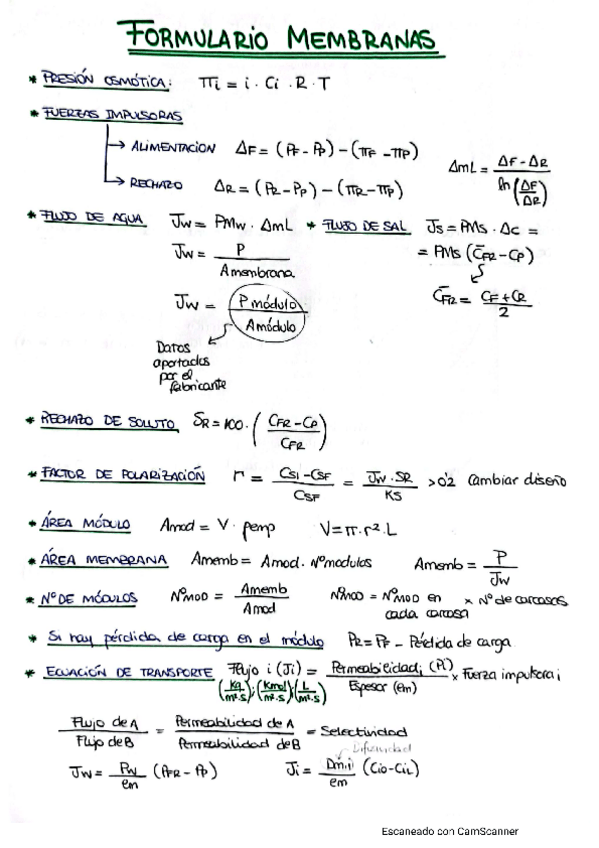 FORMULARIO MEMBRANAS
* PRESIÓN OSMÓTICA: πi = i · Ci · R · T
* FUERZAS IMPULSORAS
→ ALIMENTACION ΔF = (PF - PP) - (πF - πP)
ΔmL = (ΔF - ΔR) / ln(ΔF/ΔR)
→ RECHAZO ΔR = (PR - PP) - (πR - πP)
* FLUJO DE AGUA Jw = PMw · ΔmL * FLUJO DE SAL Js = PMs · Δc =
Jw = P / Amembrana = PMs (C̄FR - CP)
Jw = P módulo / A módulo C̄FR = (CF + CR) / 2
Datos
aportados
por el
fabricante
* RECHAZO DE SOLUTO SR = 100 · ((CFR - CP) / CFR)
* FACTOR DE POLARIZACIÓN r = (CSI - CSF) / CSF = (Jw · SR) / KS > 0'2 Cambiar diseño
* ÁREA MÓDULO Amod = V · pemp V = π · r² · L
* ÁREA MEMBRANA Amemb = Amod · Nº modulos Amemb = P / Jw
* Nº DE MÓDULOS NºMOD = Amemb / Amod NºMOD = NºMOD en cada carcasa × Nº de carcasas
* Si hay pérdida de carga en el módulo PR = PF - Pérdida de carga
* ECUACIÓN DE TRANSPORTE Flujo i (Ji) = Permeabilidad i (Pi) / Espesor (em) × Fuerza impulsora i
(Kg / m²·s) ; (Kmol / m²·s) (L / m²·s)
Flujo de A / Flujo de B = Permeabilidad de A / Permeabilidad de B = Selectividad
Difusividad
Jw = Pw / em (PFR - PP) Ji = Dm,i / em (Cio - CiL)
Escaneado con CamScanner